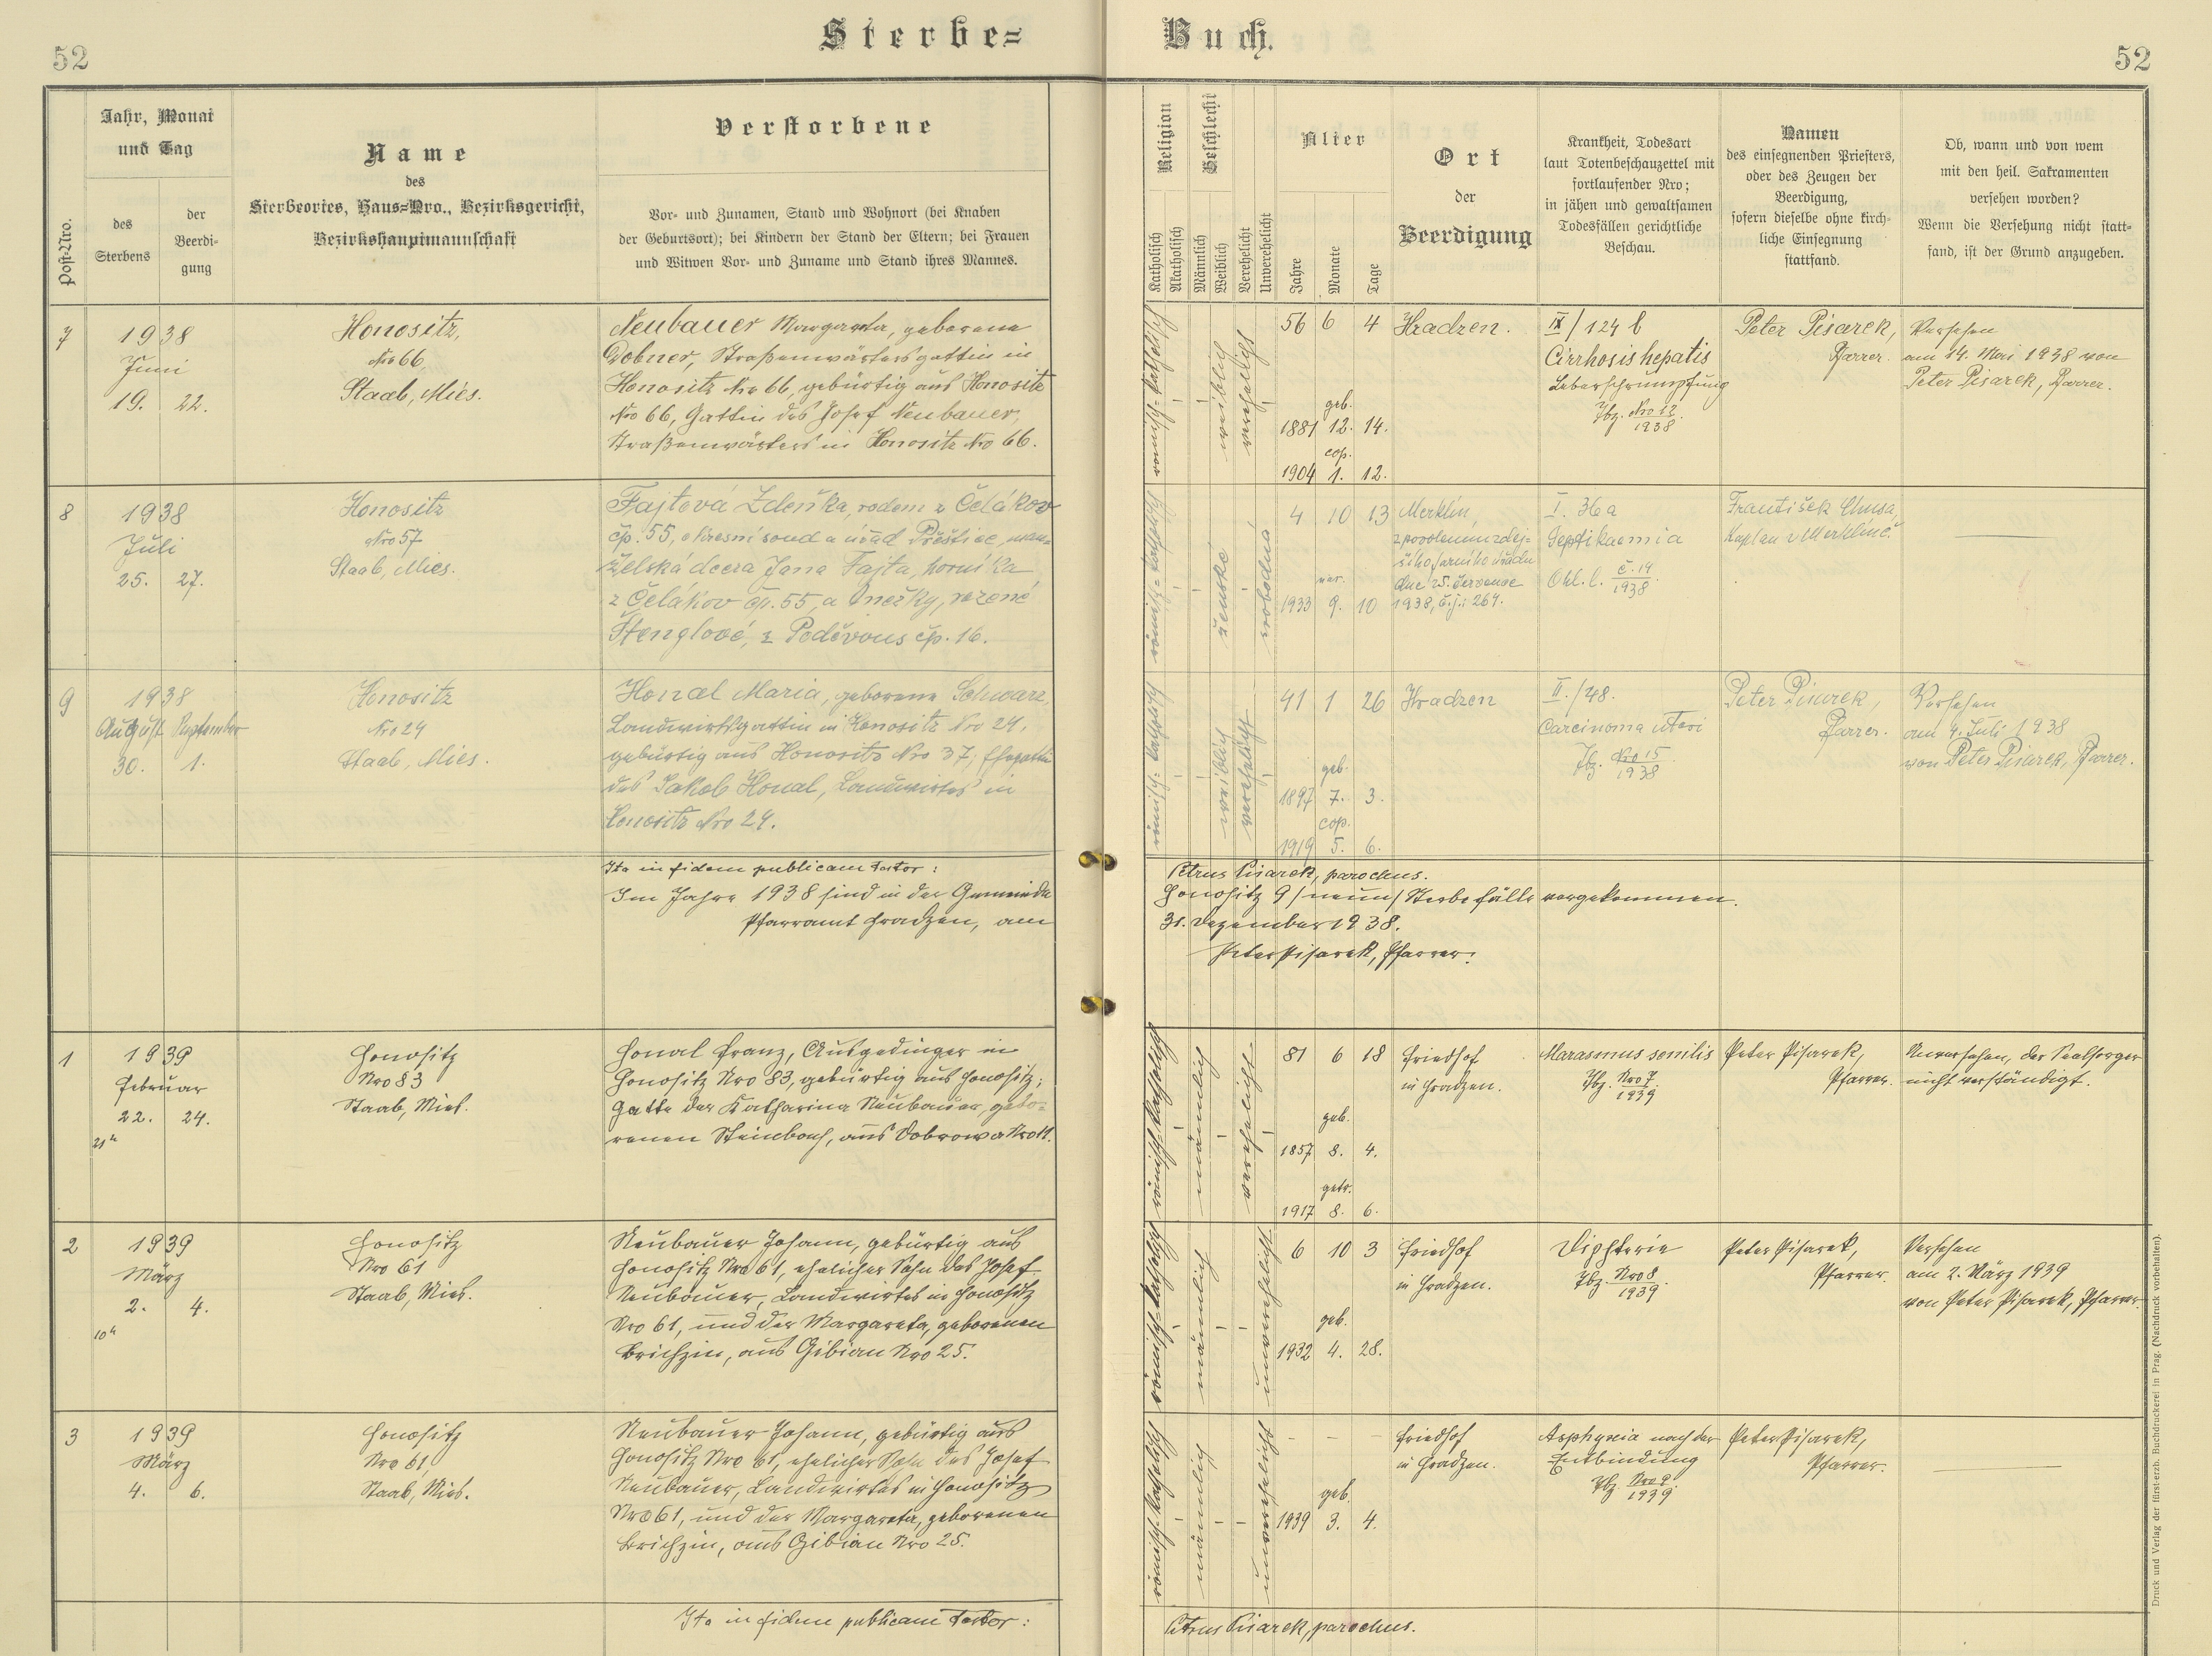 52
Sterbe=
Buch.
52
Post-Nro.
Jahr, Monat
und Tag
des
Sterbens
der
Beerdi-
gung
Name
des
Sterbeortes, Haus=Nro., Bezirksgericht,
Bezirkshauptmannschaft
Verstorbene
Vor- und Zunamen, Stand und Wohnort (bei Knaben
der Geburtsort); bei Kindern der Stand der Eltern; bei Frauen
und Witwen Vor- und Zuname und Stand ihres Mannes.
Religion
Katholisch
Akatholisch
Geschlecht
Männlich
Weiblich
Verehelicht
Unverehelicht
Alter
Jahre
Monate
Tage
Ort
der
Beerdigung
Krankheit, Todesart
laut Totenbeschauzettel mit
fortlaufender Nro;
in jähen und gewaltsamen
Todesfällen gerichtliche
Beschau.
Namen
des einsegnenden Priesters,
oder des Zeugen der
Beerdigung,
sofern dieselbe ohne kirch-
liche Einsegnung
stattfand.
Ob, wann und von wem
mit den heil. Sakramenten
versehen worden?
Wenn die Versehung nicht statt-
fand, ist der Grund anzugeben.
7
1938
Juni
19. 22.
Honositz,
Nro 66,
Staab, Mies.
Neubauer Margareta, geborene
Dobner, Straßenwärtersgattin in
Honositz Nro 66, gebürtig aus Honositz
Nro 66, Gattin des Josef Neubauer,
Straßenwärters in Honositz Nro 66.
römisch=katholisch
weiblich
verehelicht
56 6 4
geb.
1881 12. 14.
cop.
1904 1. 12.
Hradzen.
IX/124 b
Cirrhosis hepatis
Leberschrumpfung
Tbz. Nro 12/1938.
Peter Pisarek,
Pfarrer.
Versehen
am 14. Mai 1938 von
Peter Pisarek, Pfarrer.
8
1938
Juli
25. 27.
Honositz
Nro 57
Staab, Mies.
Fajtová Zdeňka, rodem z Čelákov
čp. 55, okresní soud a úřad Přeštice, man=
želská dcera Jana Fajta, horníka
z Čelákov čp. 55, a Anežky, rozené
Štenglové, z Poděvous čp. 16.
ženské
svobodná
4 10 13
nar.
1933 9. 10
Merklín,
z povolením zdej-
šího farního úřadu
dne 25. července
1938, č.j.: 264.
I. 36a
Septikaemia
Ohl. l. č. 14/1938.
František Chusa,
Kaplan v Merklíně.
9
1938
August September
30. 1.
Honositz
Nro 24
Staab, Mies.
Honal Maria, geborene Schwarz,
Landwirtsgattin in Honositz Nro 24,
gebürtig aus Honositz Nro 37; Ehegattin
des Jakob Honal, Landwirtes in
Honositz Nro 24.
römisch=katholisch
weiblich
verehelicht
41 1 26
geb.
1897 7. 3.
cop.
1919 5. 6.
Hradzen
II./48.
Carcinoma uteri
Tbz. Nro 15/1938.
Peter Pisarek,
Pfarrer.
Versehen
am 4. Juli 1938
von Peter Pisarek, Pfarrer.
Ita in fidem publicam testor: Petrus Pisarek, parochus.
Im Jahre 1938 sind in der Gemeinde Honositz 9 /neun/ Sterbefälle vorgekommen.
Pfarramt Hradzen, am 31. Dezember 1938.
Peter Pisarek, Pfarrer.
1
1939
Februar
22. 24.
21h
Honositz
Nro 83
Staab, Mies.
Honal Franz, Ausgedinger in
Honositz Nro 83, gebürtig aus Honositz;
Gatte der Katharina Neubauer, gebo=
renen Steinbach, aus Dobrowa Nro 11.
römisch=katholisch
männlich
verehelicht
81 6 18
geb.
1857 8. 4.
getr.
1917 8. 6.
Friedhof
in Hradzen.
Marasmus senilis
Tbz. Nro 7/1939.
Peter Pisarek,
Pfarrer.
Unversehen, der Seelsorger
nicht verständigt.
2
1939
März
2. 4.
10h
Honositz
Nro 61
Staab, Mies.
Neubauer Johann, gebürtig aus
Honositz Nro 61, ehelicher Sohn des Josef
Neubauer, Landwirtes in Honositz
Nro 61, und der Margareta, geborenen
Brichzin, aus Gibian Nro 25.
römisch=katholisch
männlich
unverehelicht
6 10 3
geb.
1932 4. 28.
Friedhof
in Hradzen.
Diphterie
Tbz. Nro 8/1939
Peter Pisarek,
Pfarrer.
Versehen
am 2. März 1939
von Peter Pisarek, Pfarrer.
3
1939
März
4. 6.
Honositz
Nro 61,
Staab, Mies.
Neubauer Johann, gebürtig aus
Honositz Nro 61, ehelicher Sohn des Josef
Neubauer, Landwirtes in Honositz
Nro 61, und der Margareta, geborenen
Brichzin, aus Gibian Nro 25.
römisch=katholisch
männlich
unverehelicht
geb.
1939 3. 4.
Friedhof
in Hradzen.
Asphyxia nach der
Entbindung
Tbz. Nro 9/1939.
Peter Pisarek,
Pfarrer.
Ita in fidem publicam testor: Petrus Pisarek, parochus.
Druck und Verlag der fürst-erzb. Buchdruckerei in Prag. (Nachdruck vorbehalten).